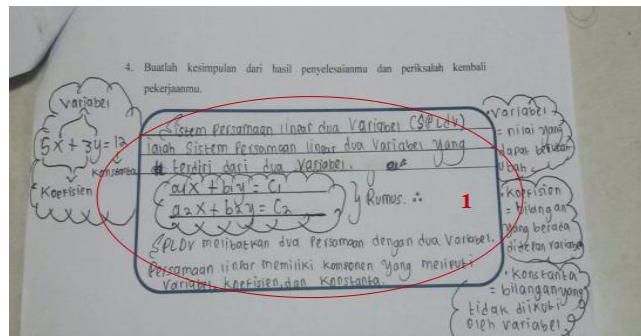 4. Buatlah kesimpulan dari hasil penyelesaianmu dan periksalah kembali
pekerjaanmu.
Variabel
5x + 3y = 12
Konstanta
Koefisien
Sistem Persamaan linear dua Variabel (SPLDV)
ialah Sistem Persamaan linear dua Variabel yang
terdiri dari dua Variabel.
a1x + b1y = C1
a2x + b2y = C2
Rumus.
1
SPLDV melibatkan dua Persamaan dengan dua Variabel.
Persamaan linear memiliki komponen yang meliputi
Variabel, koefisien, dan Konstanta.
Variabel
= nilai yang
dapat berubah
ubah.
• Koefisien
= bilangan
yang berada
didepan variabel
• Konstanta
= bilangan yang
tidak diikuti
oleh variabel